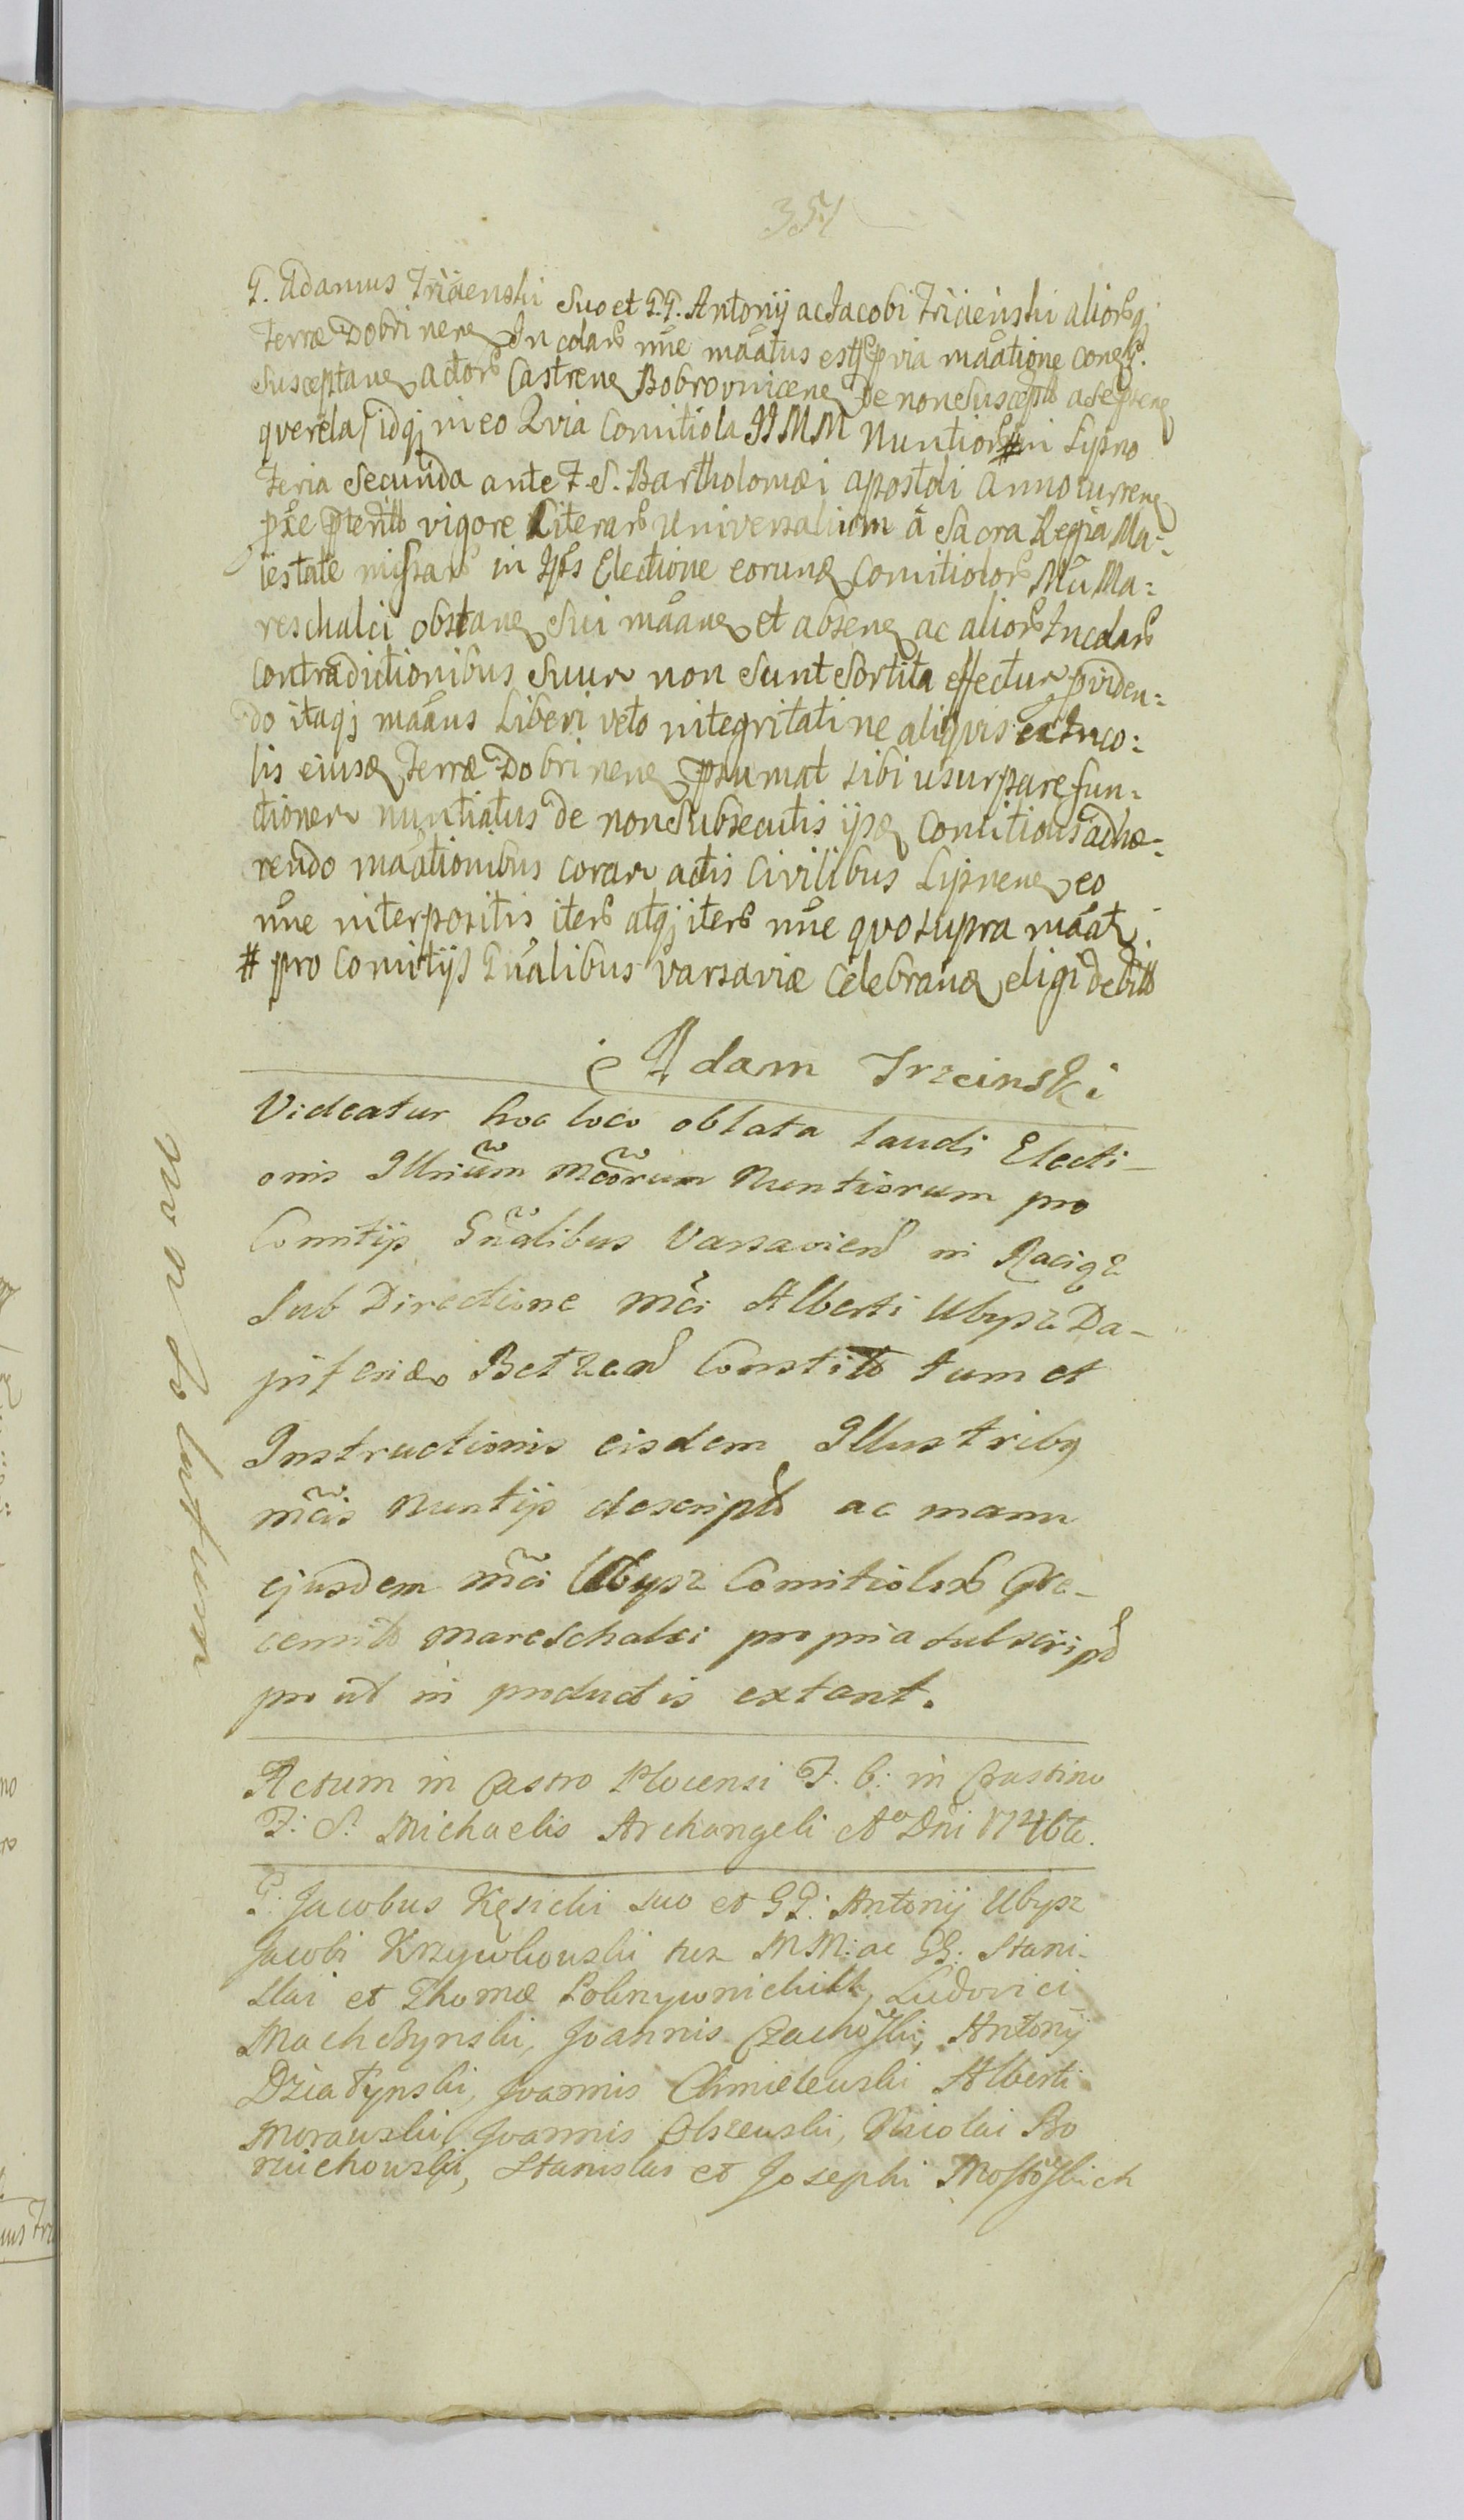 351
G. Adamus Trzcienski Suo et G.G. Antonij ac Jacobi Trzcienski aliorq;
Terræ Dobrinen Incolar nne mãatus estq; p via mãatione conqr.
Susceptaven actor Castren Bobrovnicen De nonsuscepto
querela idq; in eo Qvia Comitiola II MM Nuntior # in Lipno
Feria Secunda ante F. S. Bartholomæi apostoli anno curren
pxe pterito vigore Literar Universalium à Sacra Regia Ma-
iestate missar in Ipis Electione eorund Comitiolor Mci Ma:
reschalci obstan Sui mãan et absen ac alior Incolar
contradictionibus Suum non Sunt Sortita effectum, pviden:
do itaq; mãans Liberi veto integritati ne aliqvis ex Inco:
lis eiusd Terræ Dobrinen psumat sibi usurpare fun-
ctionem nuntiatus de nonsubsecutis ijsd Comitiolis adhæ-
rendo mãationibus coram actis Civilibus Lipnen eo
nne interpositis iter atq; iter nne quo supra mãat
# pro Comitijs Gnalibus Varsaviæ Celebrand eligi debito
Adam Trzcinski
Videatur hoc loco oblata laudi Electi-
onis Illrium Mcorum Nuntiorum pro
Comitijs Gnalibus Varsavien in Raciąż
Sub Directione Mci Alberti Ubysz Da-
piferid Betzen Constit tum et
Instructionis eisdem Illustribq
Mcis Nuntijs descript ac manu
ejusdem Mci Ubysz Comitiolor Prae-
Mareschalci propria subscript
prout in productis extant.
Actum in Castro Plocensi F. 6: in Crastino
F: S: Michaelis Archangeli Ao Dni 1746to.
G. Jacobus Kęsicki suo et GG: Antonij Ubysz
Jacobi Krzywkowski MM: ac GG: Stani-
slai et Thomæ Ludovici
Machczynski, Joannis Czachoski, Antonij
Dziatynski, Joannis Chmielewski Alberti
Morawski, Joannis Olszewski, Nicolai Bo
rzuchowski, Stanislai et Josephi Mostoskich